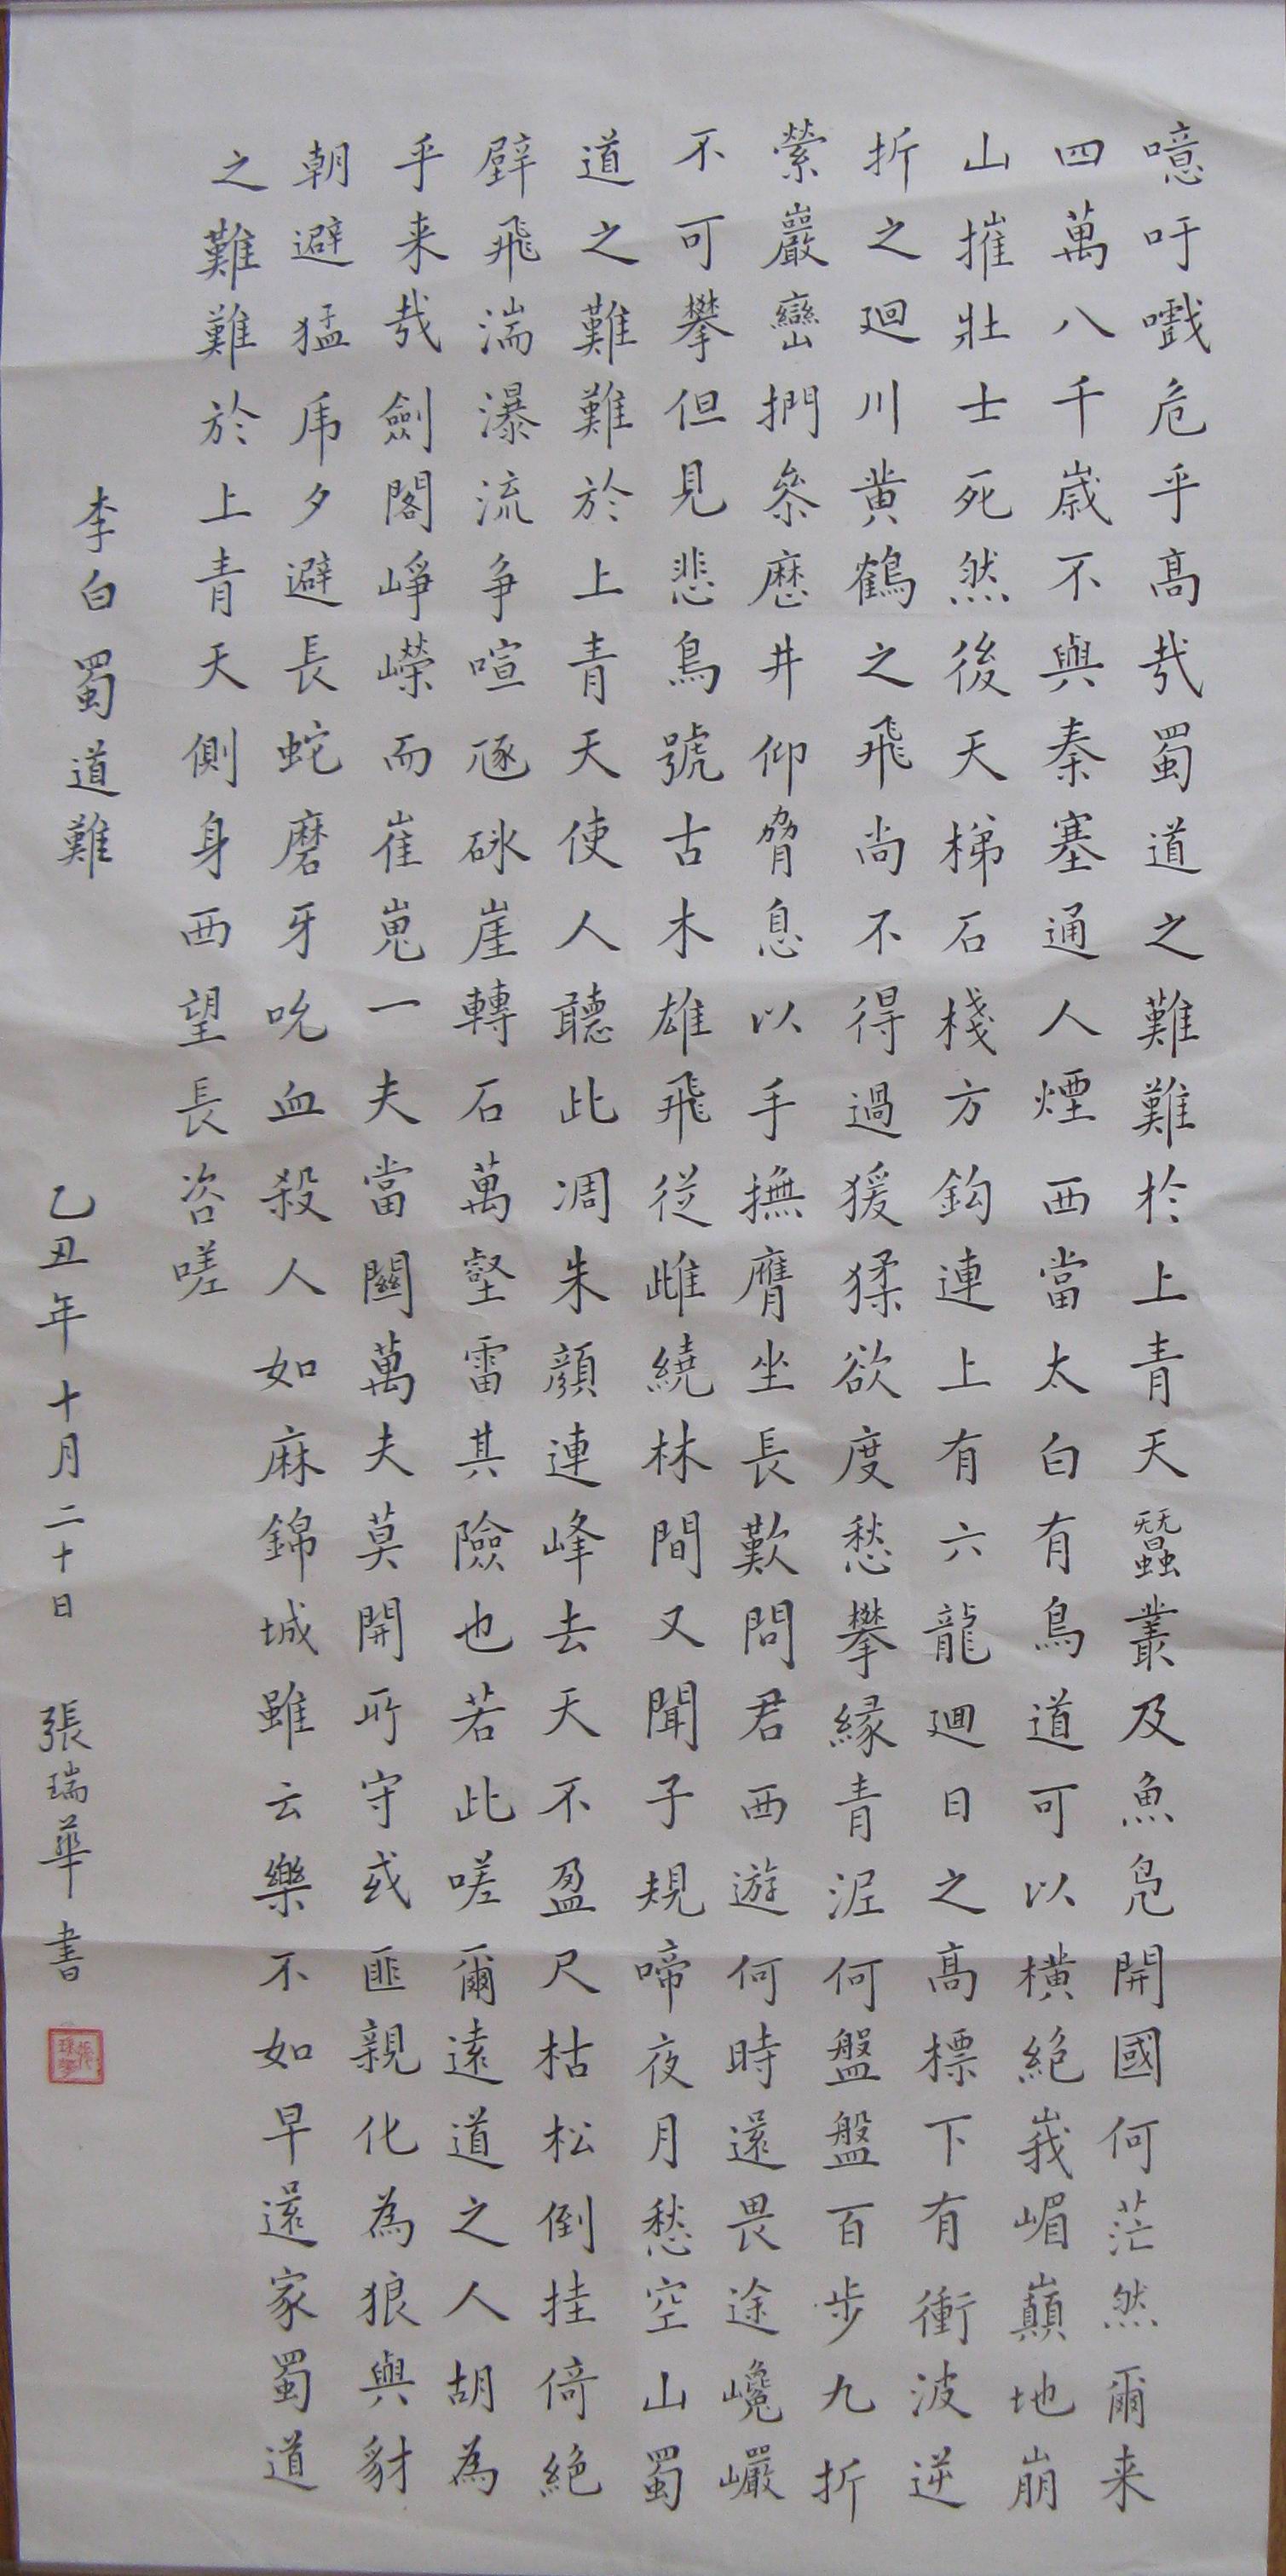 噫吁戲危乎高哉蜀道之難難於上青天蠶叢及魚鳧開國何茫然爾来
四萬八千歲不與秦塞通人煙西當太白有鳥道可以橫絶峩嵋巔地崩
山摧壯士死然後天梯石棧方鉤連上有六龍迴日之高標下有衝波逆
折之廻川黃鶴之飛尚不得過猨猱欲度愁攀緣青泥何盤盤百步九折
縈巖巒捫參歷井仰脅息以手撫膺坐長歎問君西遊何時還畏途巉巖
不可攀但見悲鳥號古木雄飛從雌繞林間又聞子規啼夜月愁空山蜀
道之難難於上青天使人聽此凋朱顏連峰去天不盈尺枯松倒挂倚絶
壁飛湍瀑流争喧豗砅崖轉石萬壑雷其險也若此嗟爾遠道之人胡為
乎来哉劍閣崢嶸而崔嵬一夫當關萬夫莫開所守或匪親化為狼與豺
朝避猛虎夕避長蛇磨牙吮血殺人如麻錦城雖云樂不如早還家蜀道
之難難於上青天側身西望長咨嗟
李白蜀道難
乙丑年十月二十日 張瑞華書